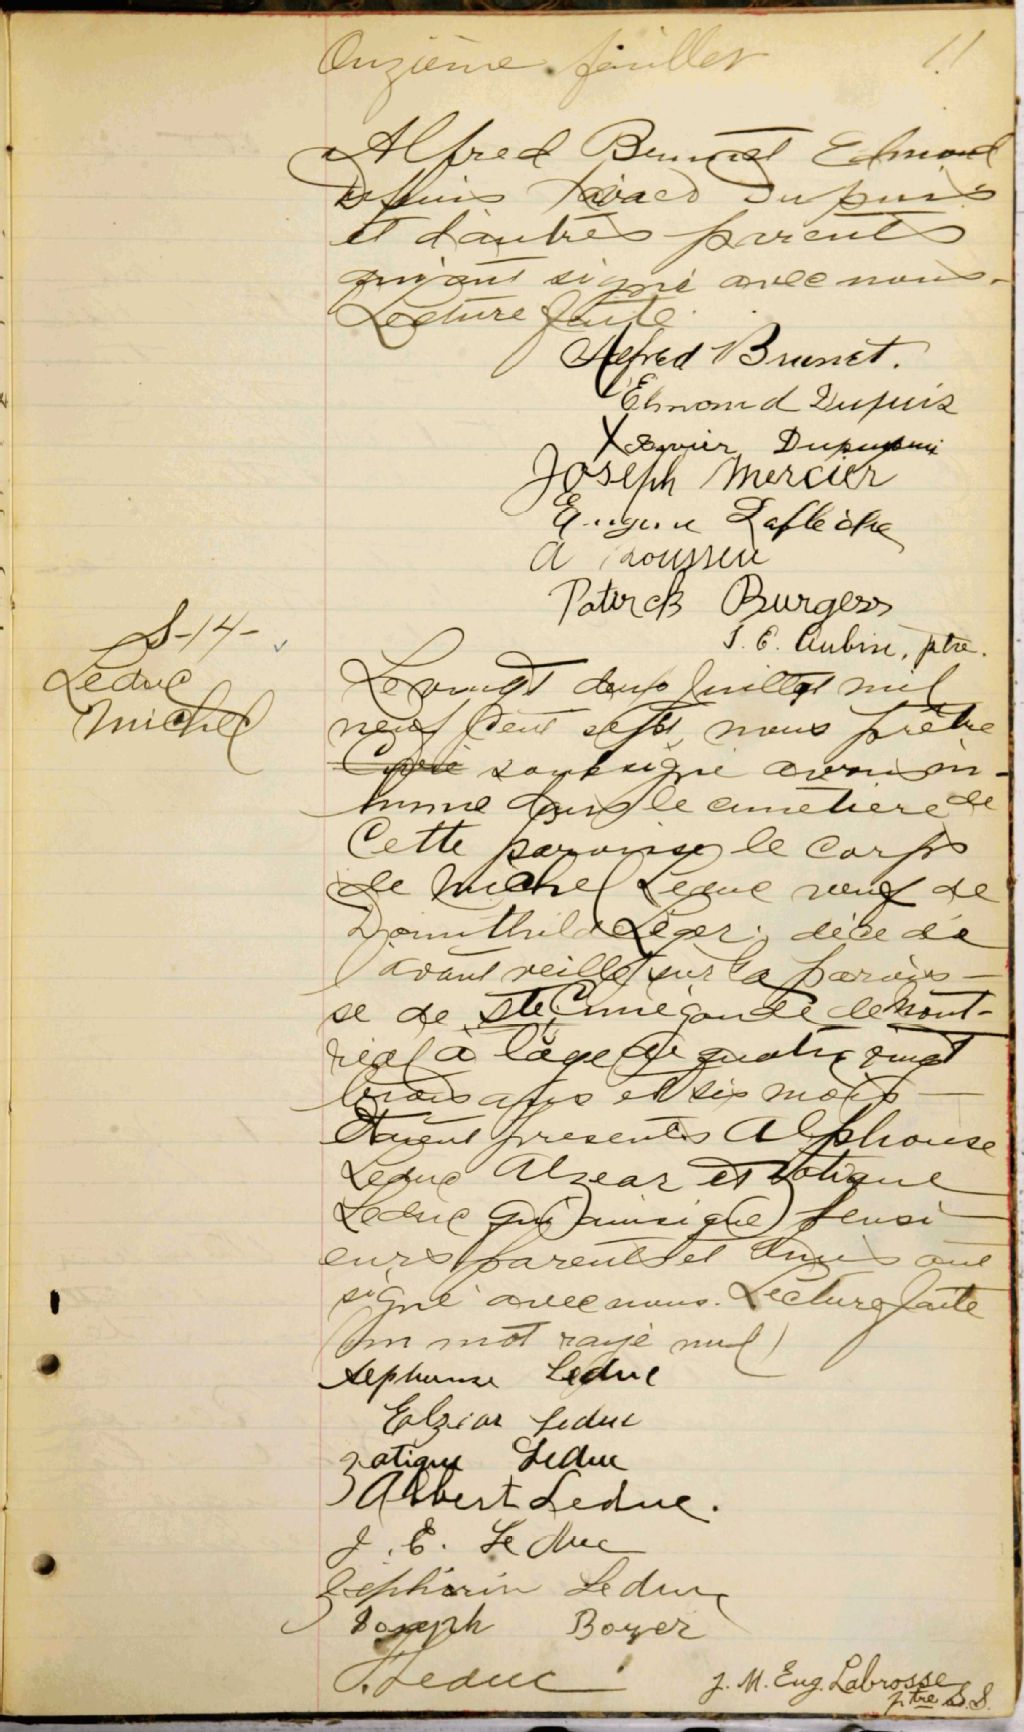 Onzième feuillet 11
Alfred Brunet Edmond
Dupuis Xavier Dupuis
et d'autres parents
qui ont signé avec nous.
Lecture faite.
Alfred Brunet.
Edmond Dupuis
Xavier Dupuis
Joseph Mercier
Eugene Lafleche
A
Patirck Burgess
J. E. Aubin, ptre.
S-14-
Leduc
Michel
Le vingt deux juillet mil
neuf cent sept, nous prêtre
Curé soussigné avons in-
humé dans le cimetière de
Cette paroisse le corps
de Michel Leduc veuf de
Domithilde Léger, décédé
avant veille sur la parois-
se de Ste Cunégonde de Mont-
réal à l'âge de quatre vingt
trois ans et six mois
Etaient présents Alphonse
Leduc Alzear et Zotique
Leduc qui ainsi que plusi
eurs parents et amis ont
signé avec nous. Lecture faite
(un mot rayé nul)
Alphonse Leduc
Elziar Leduc
Zotique Leduc
Albert Leduc.
J. E. Leduc
Zéphirin Leduc
Joseph Boyer
Leduc
J. M. Eug. Labrosse
ptre S.S.